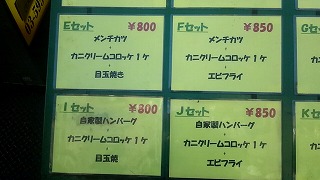 Eセット ￥800
メンチカツ
・
カニクリームコロッケ1ケ
・
目玉焼き
Fセット ￥850
メンチカツ
・
カニクリームコロッケ1ケ
・
エビフライ
Gセ
Iセット ￥800
自家製ハンバーグ
・
カニクリームコロッケ1ケ
・
目玉焼
Jセット ￥850
自家製ハンバーグ
・
カニクリームコロッケ1ケ
・
エビフライ
Kセ